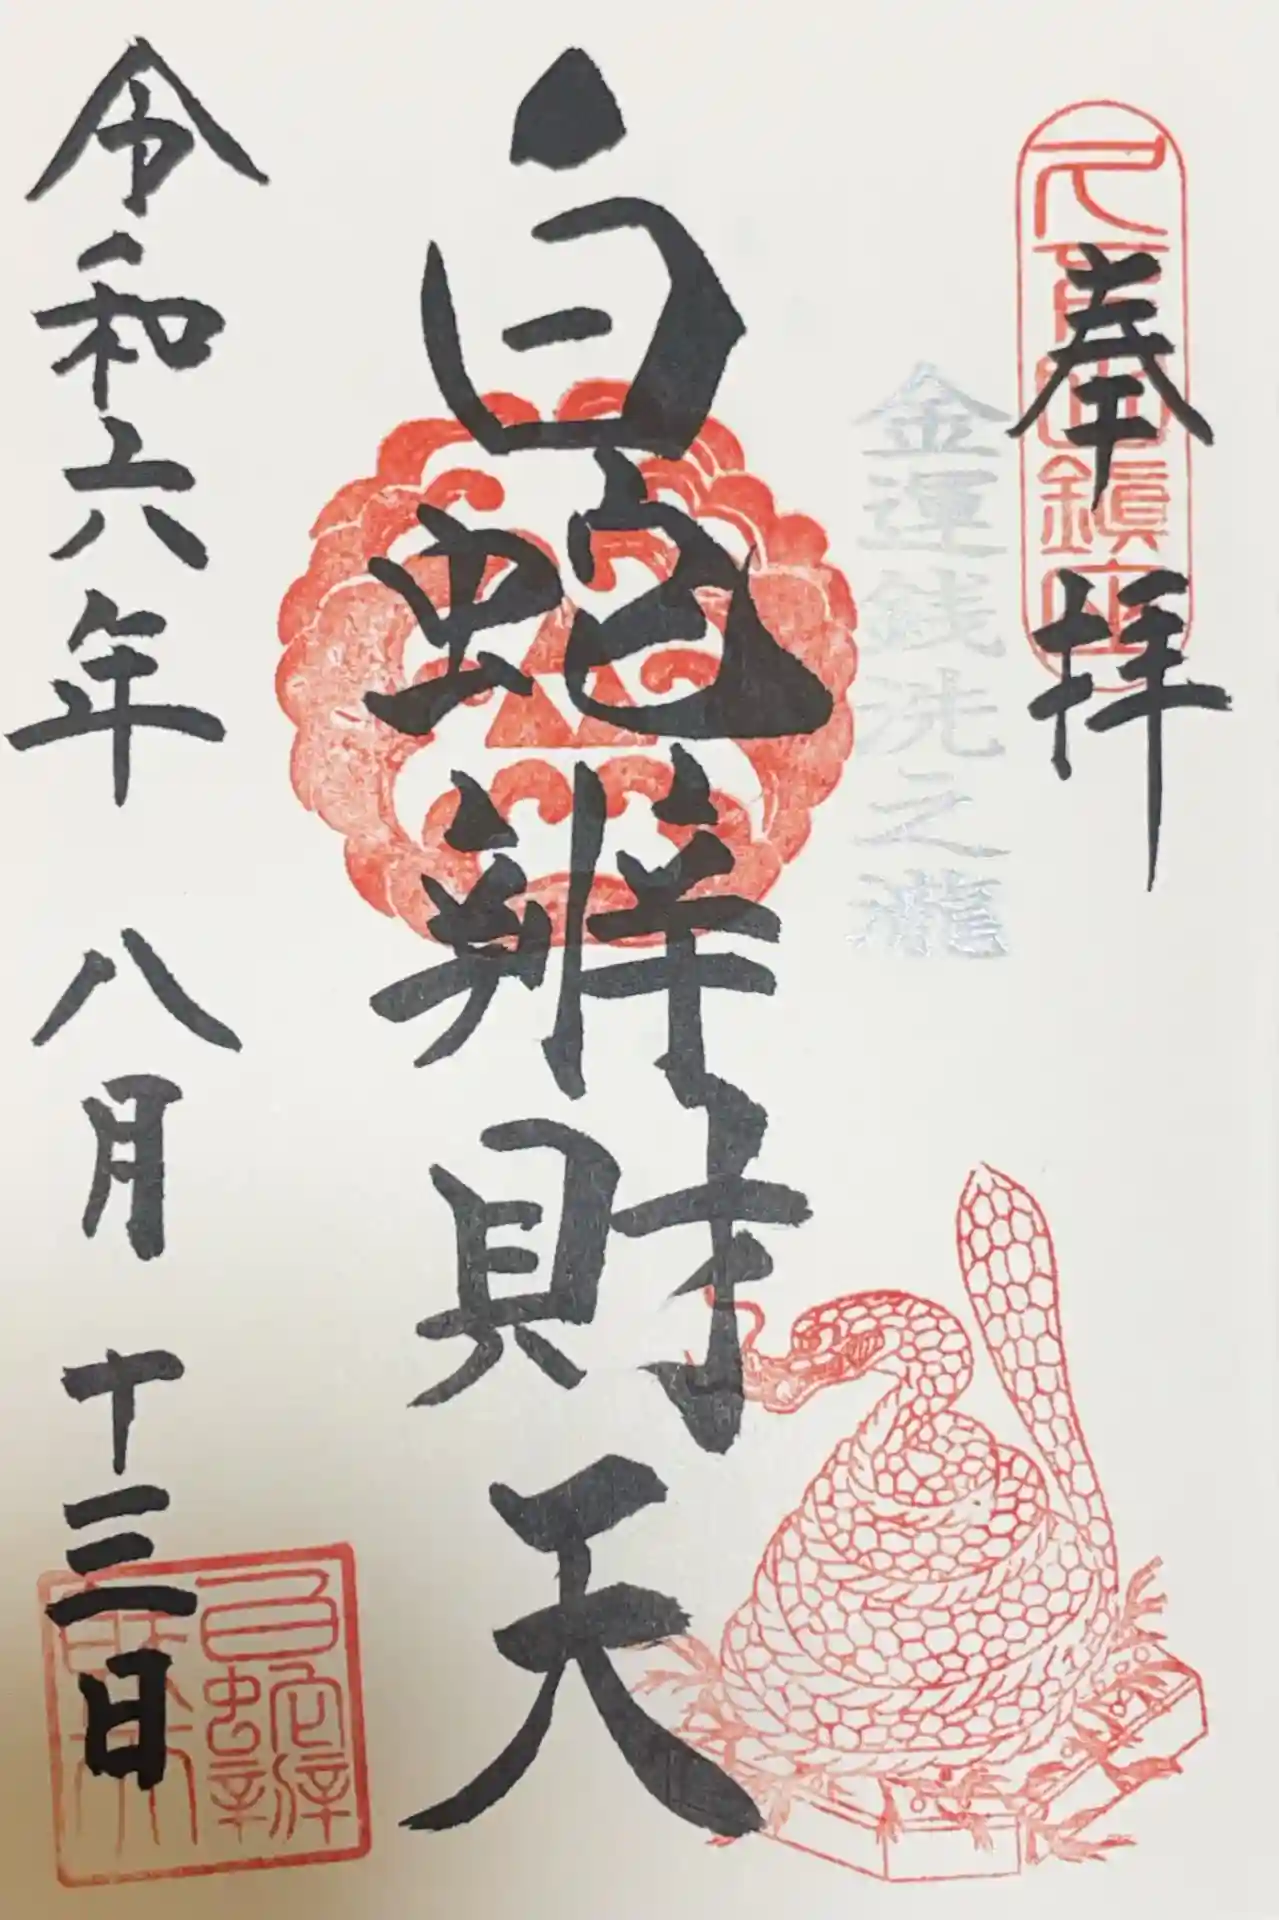 奉拝
金運銭洗之瀧
白蛇辨財天
令和六年 八月 十三日
白蛇辨財天